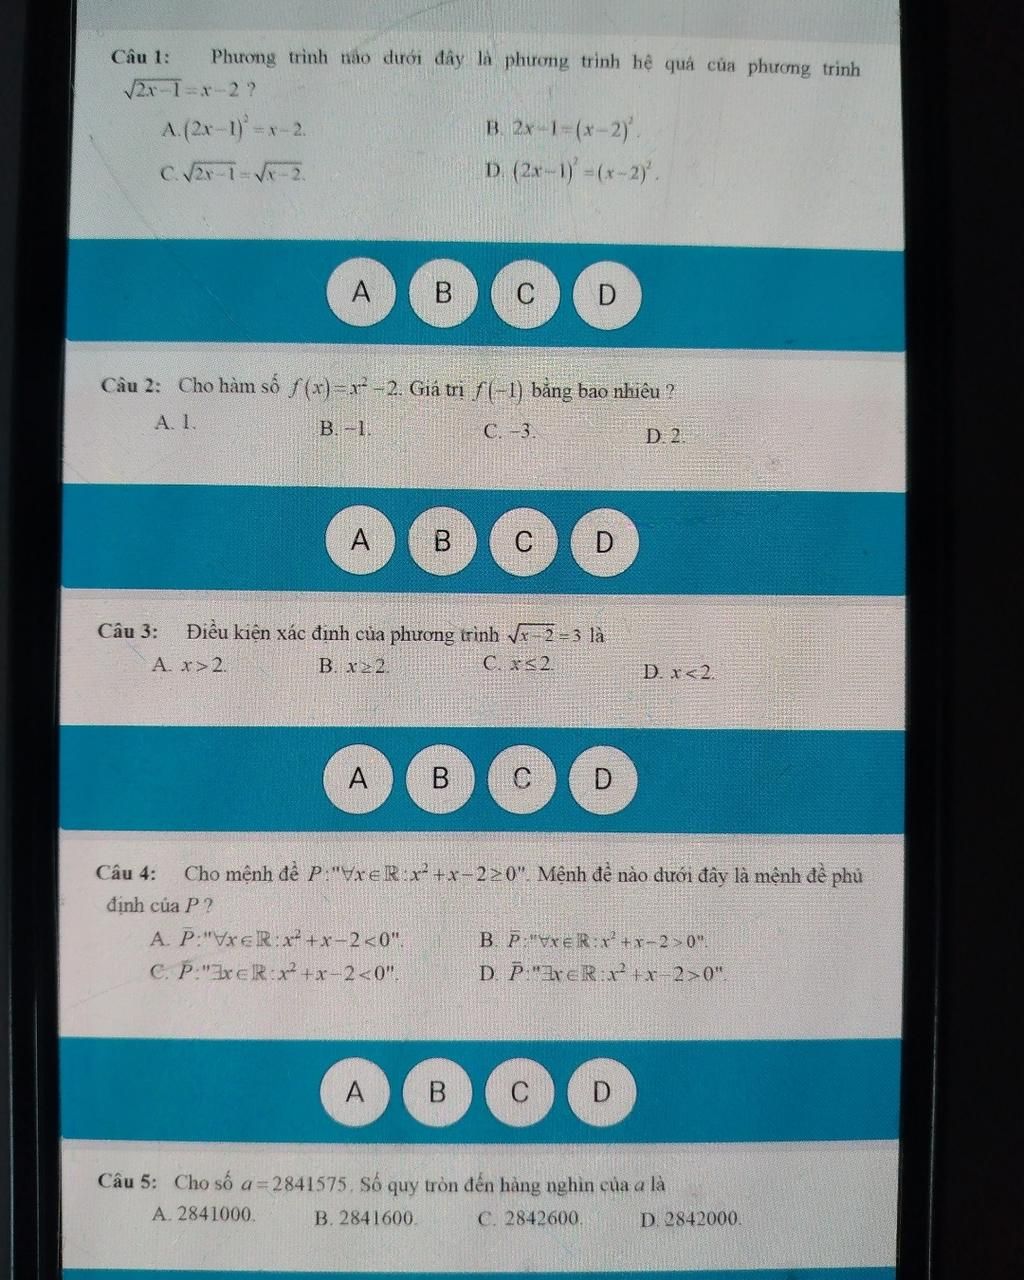 Câu 1: Phương trình nào dưới đây là phương trình hệ quả của phương trình
√(2x−1) = x−2 ?
A. (2x−1)² = x−2. B. 2x−1 = (x−2)².
C. √(2x−1) = √(x−2). D. (2x−1)² = (x−2)².
A B C D
Câu 2: Cho hàm số f(x) = x² − 2. Giá trị f(−1) bằng bao nhiêu ?
A. 1. B. −1. C. −3. D. 2.
A B C D
Câu 3: Điều kiện xác định của phương trình √(x−2) = 3 là
A. x > 2. B. x ≥ 2. C. x ≤ 2. D. x < 2.
A B C D
Câu 4: Cho mệnh đề P:"∀x∈ℝ: x² + x − 2 ≥ 0". Mệnh đề nào dưới đây là mệnh đề phủ
định của P ?
A. P̄:"∀x∈ℝ: x² + x − 2 < 0". B. P̄:"∀x∈ℝ: x² + x − 2 > 0".
C. P̄:"∃x∈ℝ: x² + x − 2 < 0". D. P̄:"∃x∈ℝ: x² + x − 2 > 0".
A B C D
Câu 5: Cho số a = 2841575. Số quy tròn đến hàng nghìn của a là
A. 2841000. B. 2841600. C. 2842600. D. 2842000.